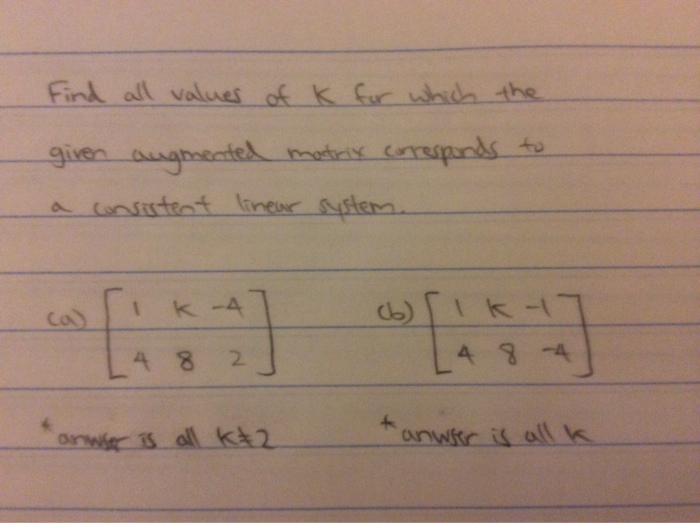 Find all values of K for which the
given augmented matrix corresponds to
a consistent linear system.
(a) [ 1 K -4 (b) [ 1 K -1
4 8 2 ] 4 8 -4 ]
* anwser is all K≠2 * anwser is all K